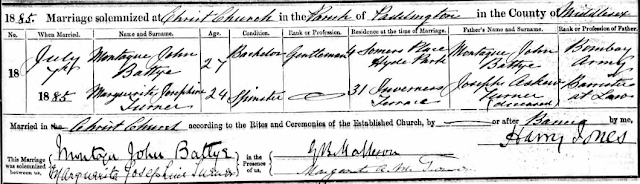 1885. Marriage solemnized at Christ Church in the Parish of Paddington in the County of Middlesex
No. When Married. Name and Surname. Age. Condition. Rank or Profession. Residence at the time of Marriage. Father's Name and Surname. Rank or Profession of Father.
18 July 7th 1885 Montague John Battye 27 Bachelor Gentleman 4 Somers Place Hyde Park Montague John Battye Bombay Army
Marguerite Josephine Turner 24 Spinster 31 Inverness Terrace Joseph Askew Turner (deceased) Barrister at Law
Married in the Christ Church according to the Rites and Ceremonies of the Established Church, by or after Banns by me,
Harry Jones
This Marriage was solemnized between us, Montagu John Battye Marguerite Josephine Turner in the Presence of us, Margaret